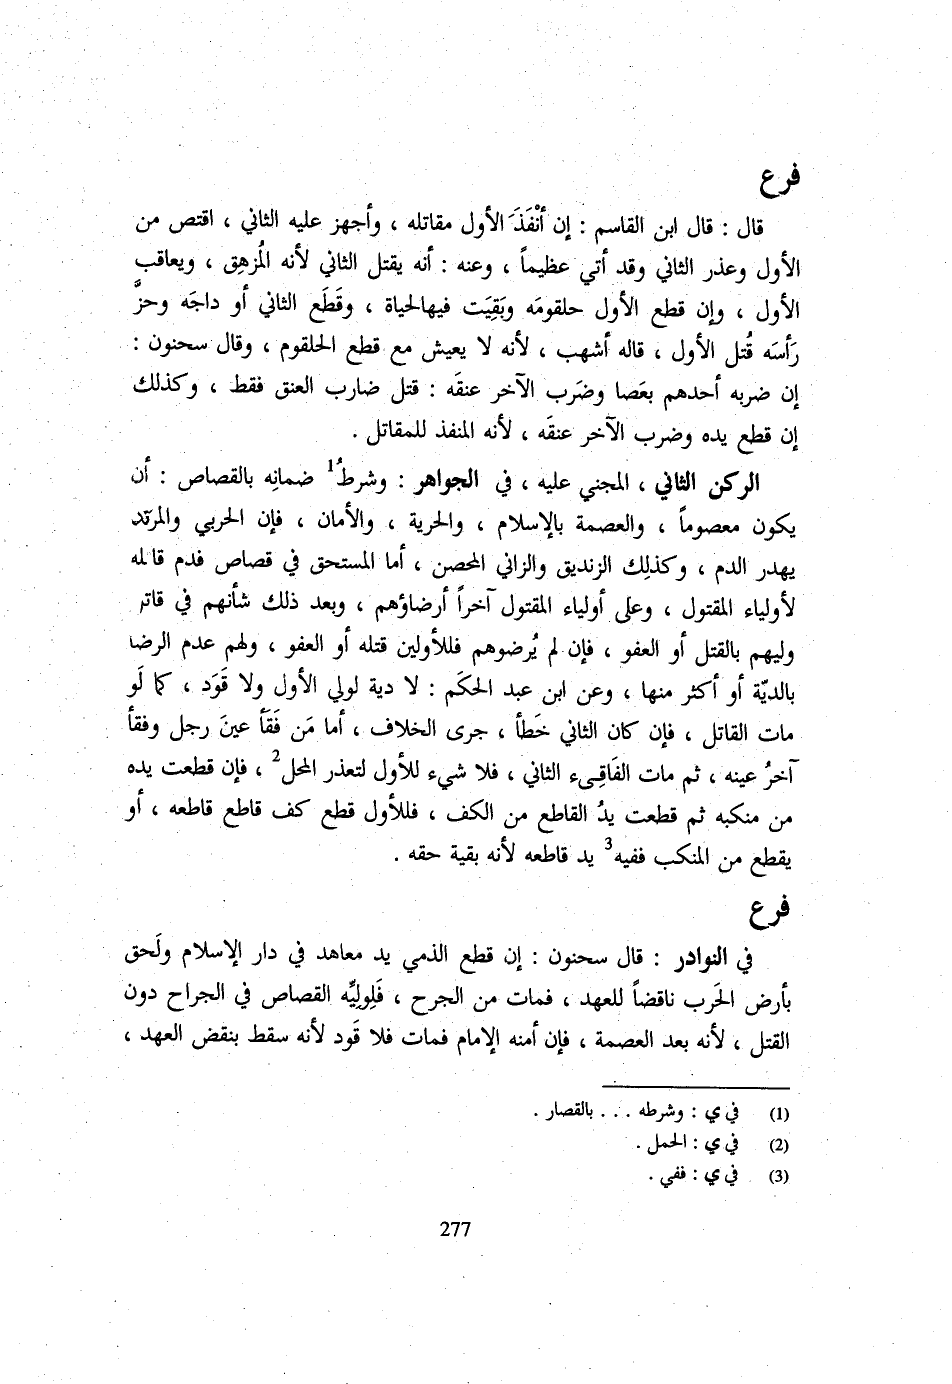 فرع
قال : قال ابن القاسم : إن أنْفَذَ الأول مقاتله ، وأجهز عليه الثاني ، اقتص من
الأول وعذر الثاني وقد أتي عظيماً ، وعنه : أنه يقتل الثاني لأنه المُزهِق ، ويعاقب
الأول ، وإن قطع الأول حلقومَه وبَقِيَت فيهالحياة ، وقَطَع الثاني أو داجَه وحزَّ
رَأسَه قُتل الأول ، قاله أشهب ، لأنه لا يعيش مع قطع الحلقوم ، وقال سحنون :
إن ضربه أحدهم بعَصا وضَرب الآخر عنقَه : قتل ضارب العنق فقط ، وكذلك
إن قطع يده وضرب الآخر عنقَه ، لأنه المنفذ للمقاتل .
الركن الثاني ، المجني عليه ، في الجواهر : وشرطُ1 ضمانِه بالقصاص : أن
يكون معصوماً ، والعصمة بالإسلام ، والحرية ، والأمان ، فإن الحربي والمرتد
يهدر الدم ، وكذلِك الزنديق والزاني المحصن ، أما المستحق في قصاص فدم قاتله
لأولياء المقتول ، وعلى أولياء المقتول آخراً أرضاؤهم ، وبعد ذلك شأنهم في قاتل
وليهم بالقتل أو العفو ، فإن لم يُرضوهم فللأولين قتله أو العفو ، ولهم عدم الرضا
بالديّة أو أكثر منها ، وعن ابن عبد الحكَم : لا دية لولي الأول ولا قَوَد ، كما لَو
مات القاتل ، فإن كان الثاني خَطأ ، جرى الخلاف ، أما مَن فَقَأ عينَ رجل وفقأ
آخرُ عينه ، ثم مات الفَاقِىء الثاني ، فلا شيء للأول لتعذر المحل2 ، فإن قطعت يده
من منكبه ثم قطعت يدُ القاطع من الكف ، فللأول قطع كف قاطع قاطعه ، أو
يقطع من المنكب ففيه3 يد قاطعه لأنه بقية حقه .
فرع
في النوادر : قال سحنون : إن قطع الذمي يد معاهد في دار الإسلام ولَحق
بأرض الحَرب ناقضاً للعهد ، فمات من الجرح ، فَلِولِيِّه القصاص في الجراح دون
القتل ، لأنه بعد العصمة ، فإن أمنه الإمام فمات فلا قَود لأنه سقط بنقض العهد ،
(1) في ي : وشرطه . . . بالقصار .
(2) في ي : الحمل .
(3) في ي : ففي .
277